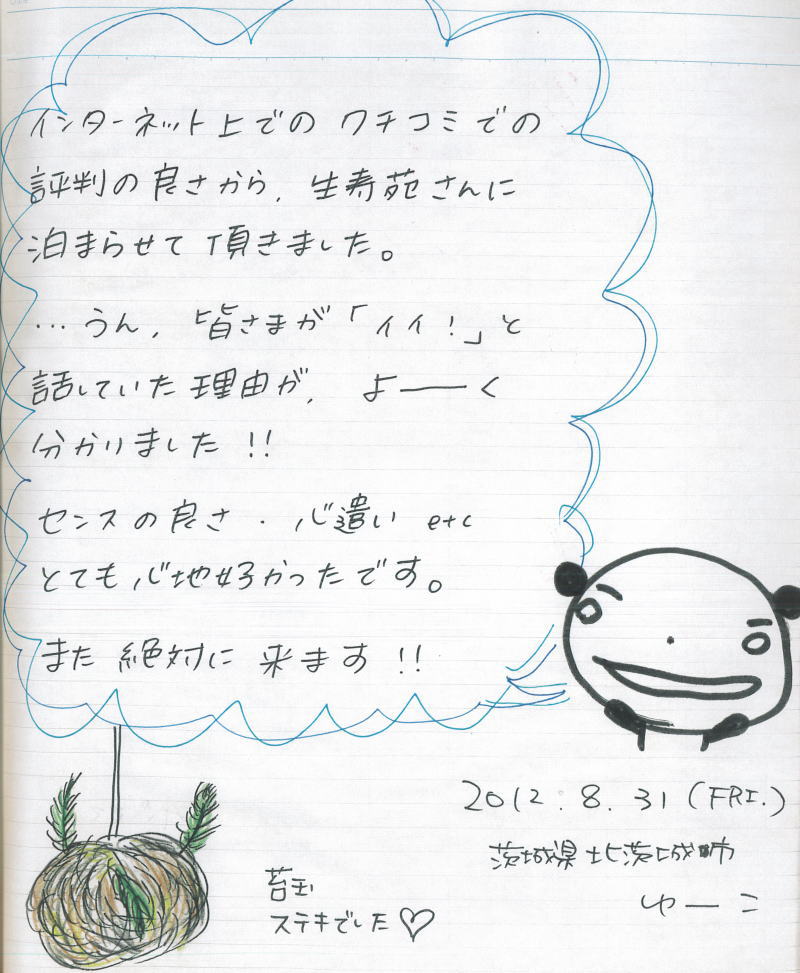 インターネット上での クチコミでの
評判の良さから、生寿苑さんに
泊まらせて頂きました。
…うん、皆さまが「イイ!」と
話していた理由が、よーーく
分かりました!!
センスの良さ・心遣い etc
とても心地好かったです。
また絶対に来ます!!
2012.8.31(FRI.)
茨城県北茨城市
ゆーこ
苔玉
ステキでした♡